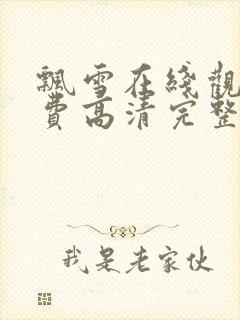 飄雪在綫觀
費高清完整
我是老家伙